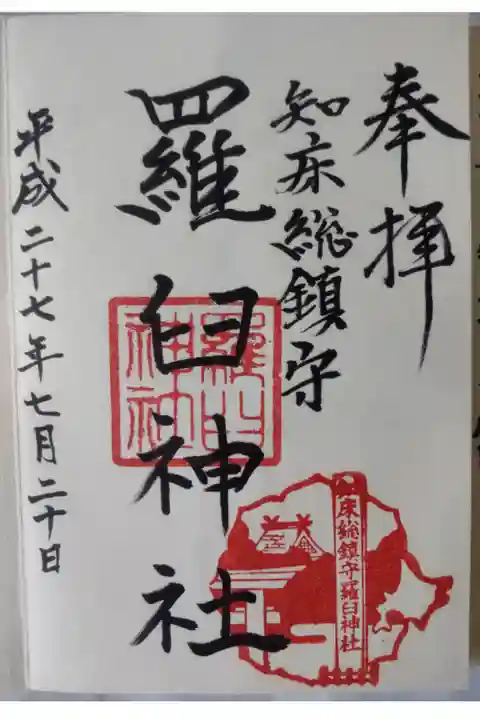 奉拝
知床総鎮守
羅臼神社
平成二十七年七月二十日
羅臼
神社
知床総鎮守羅臼神社